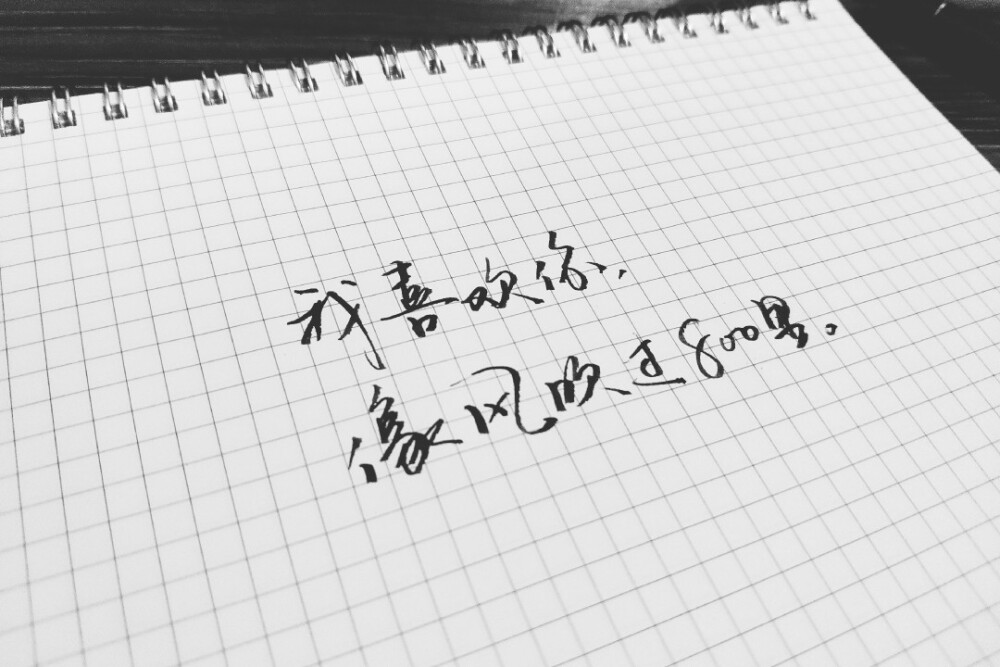 我喜欢你..
像风吹过800里.